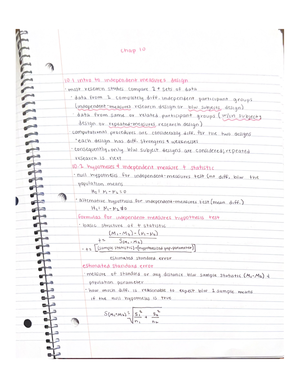 chap 10
10.1 intro to independent measures design
most research studies compare 2+ sets of data
data from 2 completely diff. independent participant groups
(independent-measures research design or b/w subjects design)
data from same or related participant groups (within subjects
design or repeated-measures research design)
computational procedures are considerably diff for the two designs
each design has diff strengths & weaknesses
consequently, only b/w subject designs are considered, repeated
research is next
10.2 hypothesis & independent measure t statistic
null hypothesis for independent-measures test (no diff. b/w the
population means
H₀: μ₁ - μ₂ = 0
alternative hypothesis for independent-measures test (mean diff.)
H₁: μ₁ - μ₂ ≠ 0
formulas for independent measures hypothesis test
basic structure of t statistic
t = (M₁-M₂) - (μ₁-μ₂)
S(M₁-M₂)
t = [(sample statistic) - (hypothesized pop. parameter)]
estimated standard error
estimated standard error
measure of standard or avg distance b/w sample statistic (M₁-M₂) &
population parameter
how much diff. is reasonable to expect b/w 2 sample means
if the null hypothesis is true
S(M₁-M₂) = √ S₁²/n₁ + S₂²/n₂